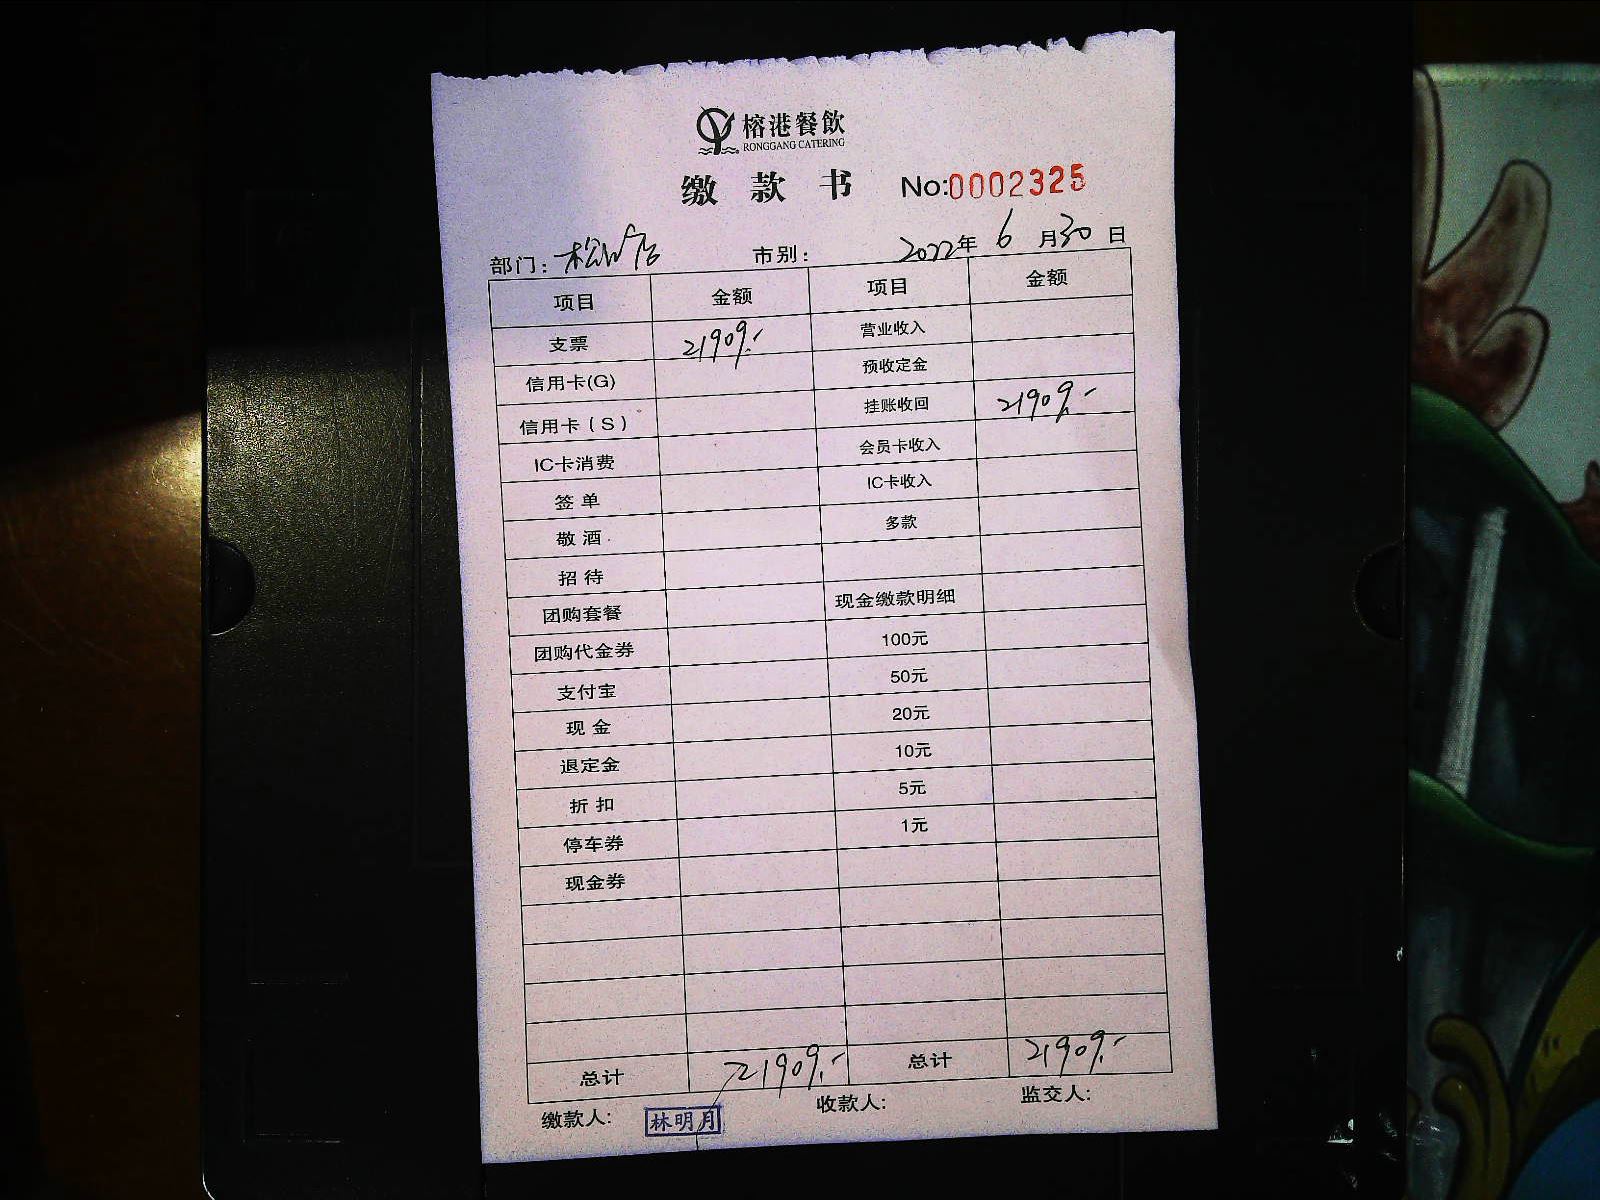 榕港餐飲
RONGGANG CATERING
缴款书 No:0002325
部门: 松山店 市别: 2022年 6月30日
项目 金额 项目 金额
支票 21909.- 营业收入
信用卡(G) 预收定金
信用卡(S) 挂账收回 21909.-
IC卡消费 会员卡收入
签单 IC卡收入
敬酒 多款
招待
团购套餐 现金缴款明细
团购代金券 100元
支付宝 50元
现金 20元
退定金 10元
折扣 5元
停车券 1元
现金券
总计 21909.- 总计 21909.-
缴款人: 林明月 收款人: 监交人: